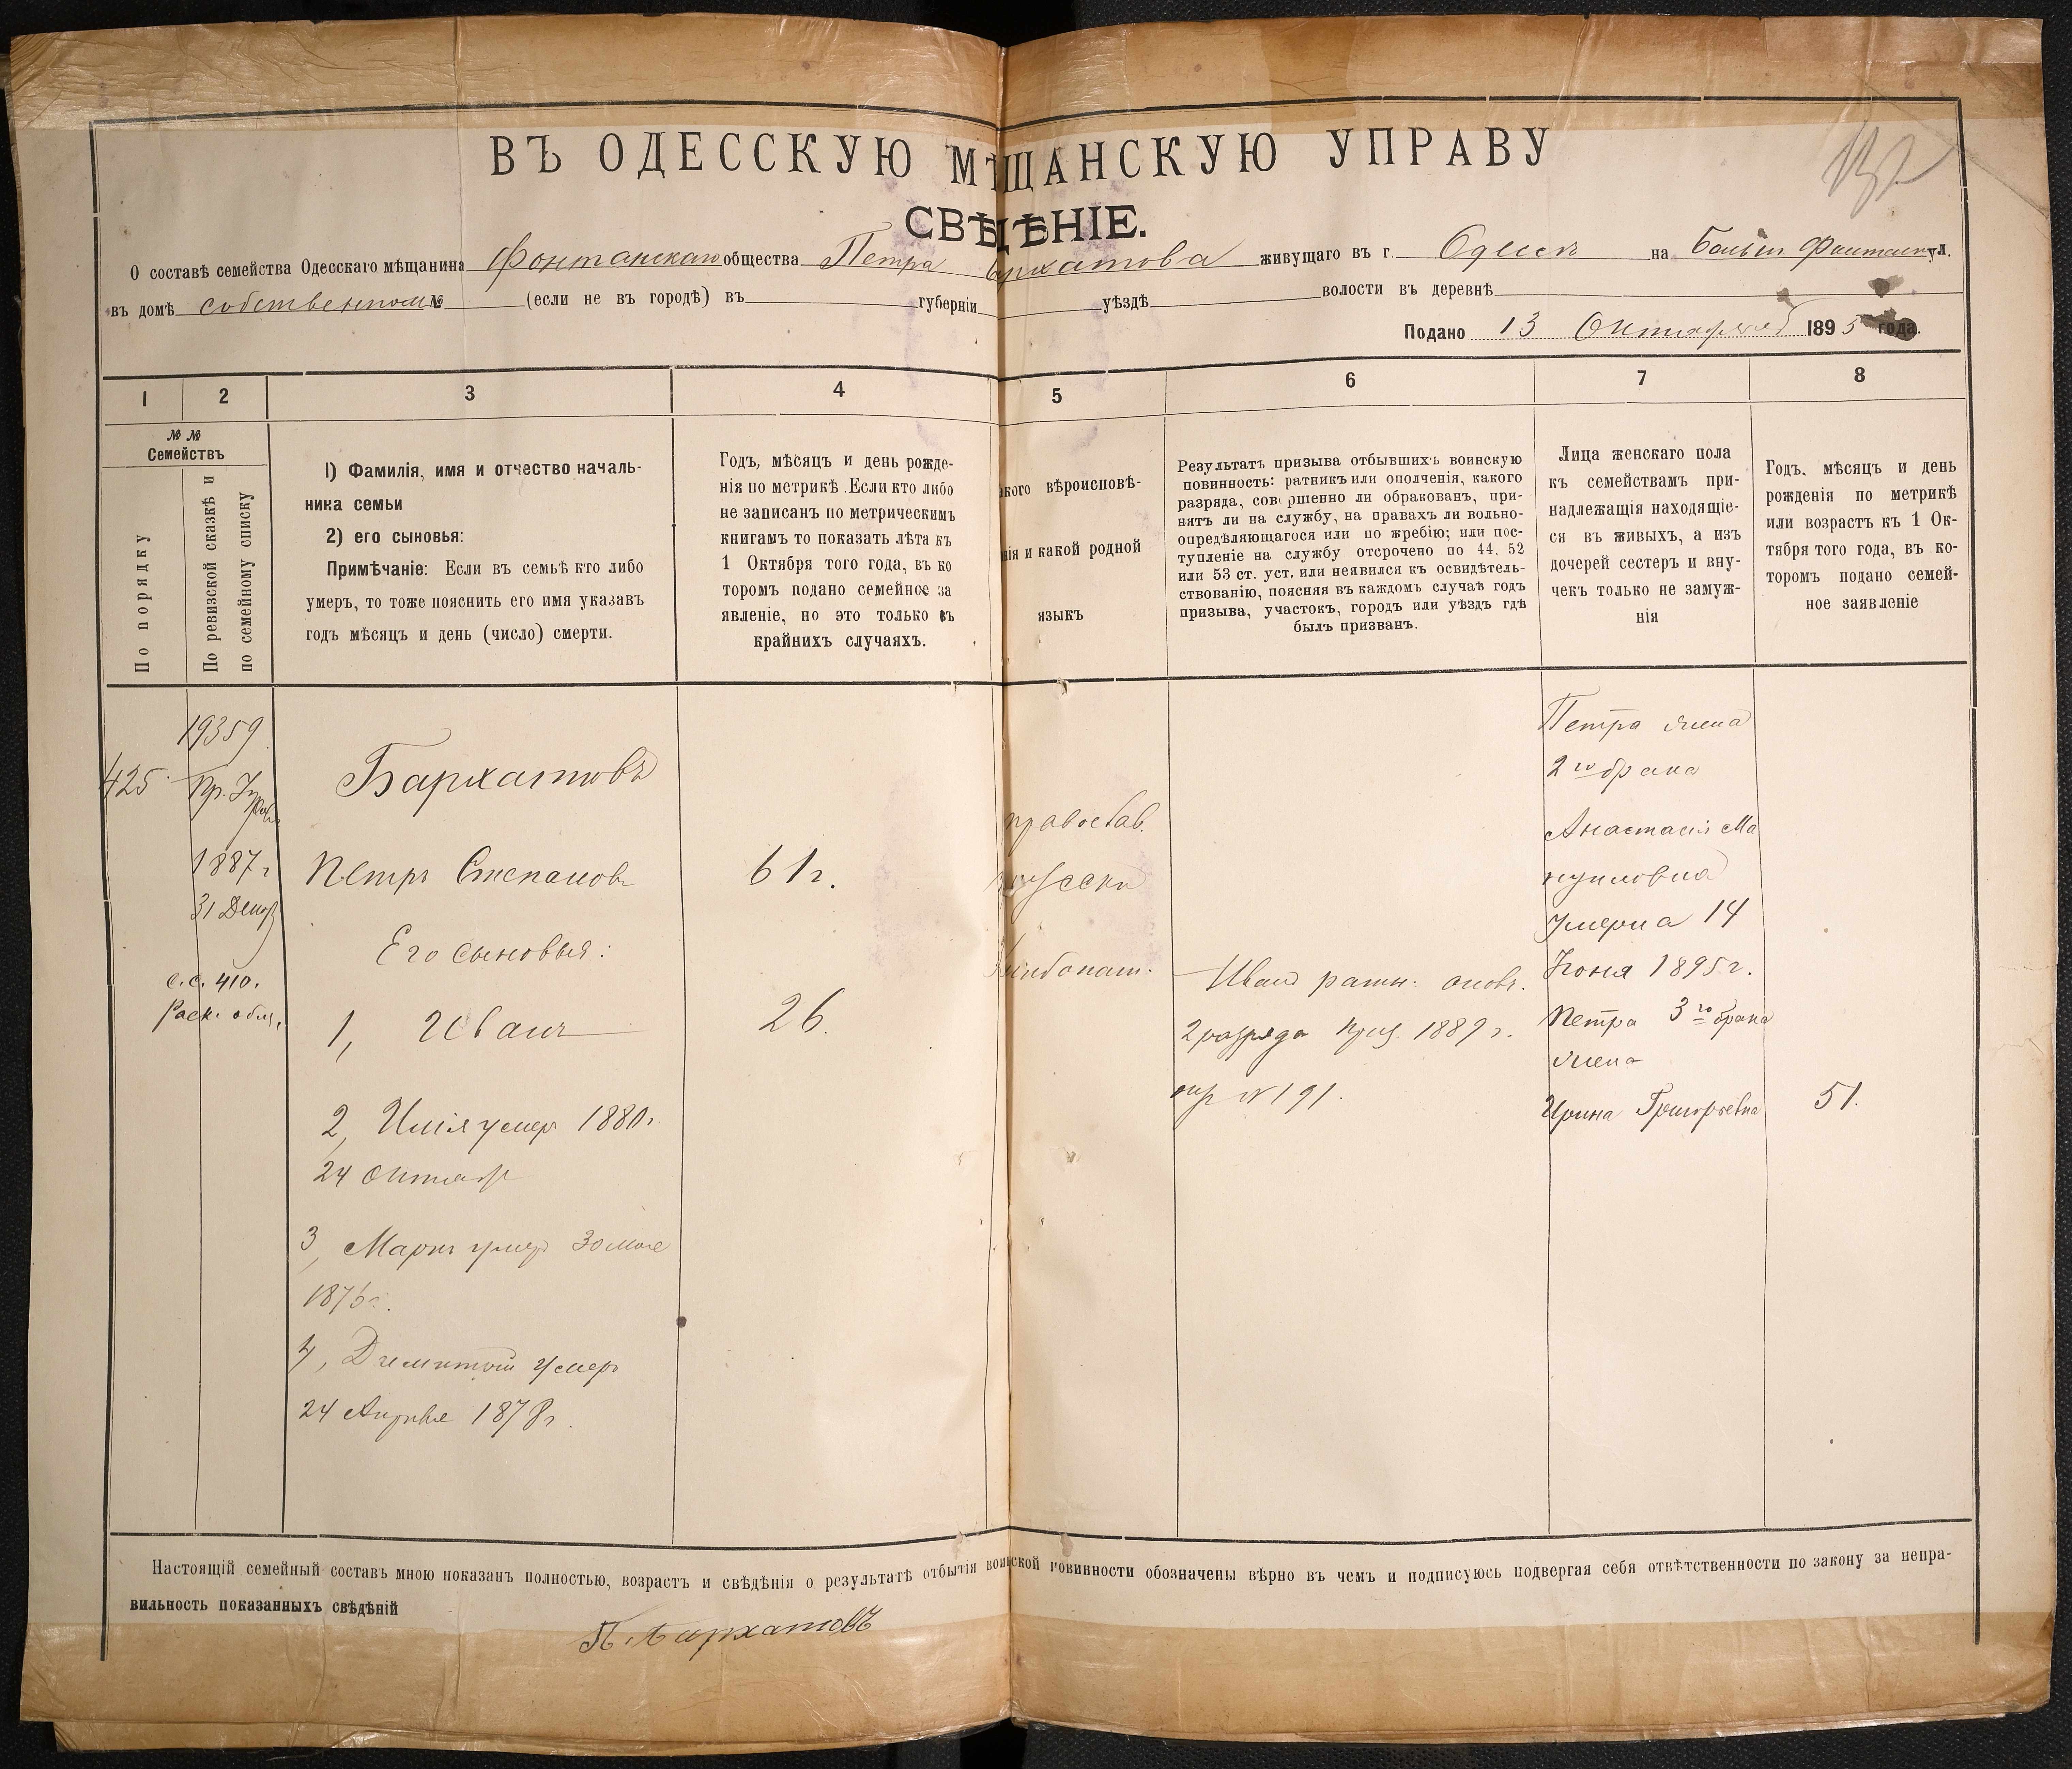 ВЪ ОДЕССКУЮ МѢЩАНСКУЮ УПРАВУ
СВѢДѢНІЕ.
О составѣ семейства Одесскаго мѣщанина Фонтанскаго общества Петра Бархатова живущаго въ г. Одессѣ на Больш Фонтанѣ ул.
въ домѣ собственном № (если не въ городѣ) въ губерніи уѣздѣ волости въ деревнѣ
Подано 13 Октября 1895 года.
1 2 3 4 5 6 7 8
№ №
Семействъ
По порядку
По ревизской сказкѣ и
по семейному списку
1) Фамилія, имя и отчество началь-
ника семьи
2) его сыновья:
Примѣчаніе: Если въ семьѣ кто либо
умеръ, то тоже пояснить его имя указавъ
годъ мѣсяцъ и день (число) смерти.
Годъ, мѣсяцъ и день рожде-
нія по метрикѣ. Если кто либо
не записанъ по метрическимъ
книгамъ то показать лѣта къ
1 Октября того года, въ ко
торомъ подано семейное за
явленіе, но это только въ
крайнихъ случаяхъ.
кого вѣроисповѣ-
нія и какой родной
языкъ
Результатъ призыва отбывшихъ воинскую
повинность: ратникъ или ополченія, какого
разряда, совершенно ли обракованъ, при-
нятъ ли на службу, на правахъ ли вольно-
опредѣляющагося или по жребію; или пос-
тупленіе на службу отсрочено по 44. 52
или 53 ст. уст. или неявился къ освидѣтель-
ствованію, поясняя въ каждомъ случаѣ годъ
призыва, участокъ, городъ или уѣздъ гдѣ
былъ призванъ.
Лица женскаго пола
къ семействамъ при-
надлежащія находящіе-
ся въ живыхъ, а изъ
дочерей сестеръ и вну-
чекъ только не замуж-
нія
Годъ, мѣсяцъ и день
рожденія по метрикѣ
или возрастъ къ 1 Ок-
тября того года, въ ко-
торомъ подано семей-
ное заявленіе
425
19359
Пр.
1887 г
31 Декаб
с.с. 410.
Раск.
Бархатовъ
Петръ Степановъ
Его сыновья:
1, Иванъ
2, Илія умеръ 1880 г
24 Октяб
3, Маркъ умеръ 30 мая
187
4, Дмитрій умеръ
24 Апрѣля 1878 г.
61 г.
26.
православ.
русскій
Иванъ ратн. опол.
2 разряда приз. 1889 г.
№ 191.
Петра жена
2го брака
Анастасія Ма
нуиловна
умерла 14
Іюня 1895 г.
Петра 3го брака
жена
Ирина Григорьевна
51.
Настоящій семейный составъ мною показанъ полностью, возрастъ и свѣдѣнія о результатѣ отбытія воинской повинности обозначены вѣрно въ чемъ и подписуюсь подвергая себя отвѣтственности по закону за непра-
вильность показанныхъ свѣдѣній
П. Бархатовъ